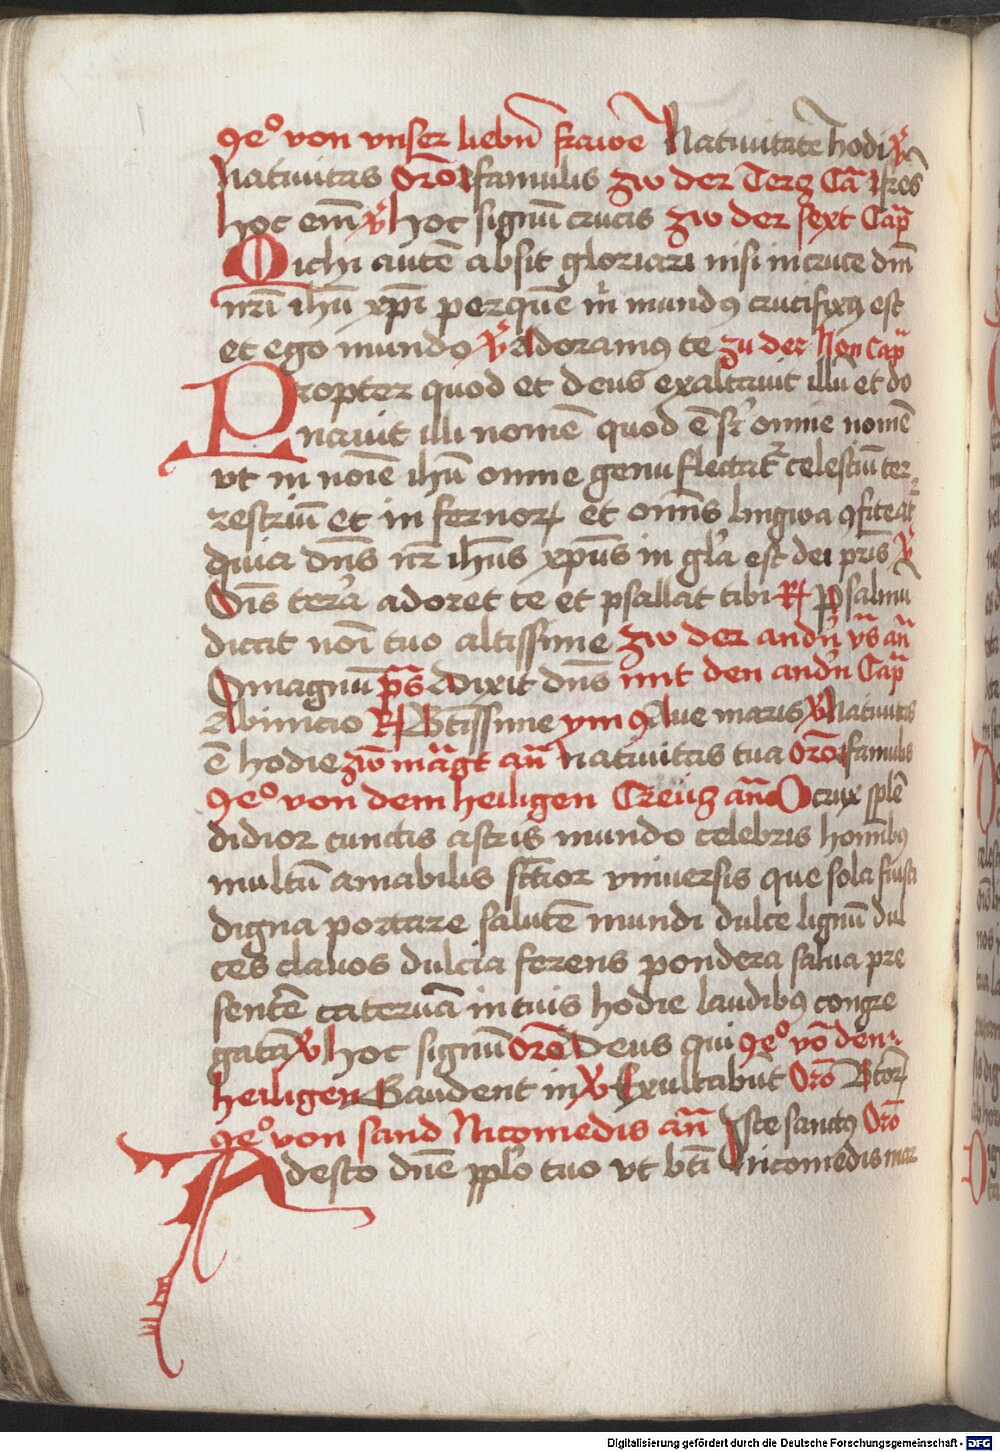 ꝯeº von vnser liebn̄ frawē Natiuitatē hodi ℣
natiuitas Orō famulis zw der Tercz Cā Fr̄es
hoc em̄ ℣ hoc signū crucis zw der sext Cap̄
Michi autē absit gloriari nisi in cruce dn̄i
nr̄i ih̄u xp̄i per quē m̄ mundꝰ crucifixꝰ est
et ego mundo ℣ Adoramꝰ te zu der Non Cap̄
Propter quod et deus exaltauit illū et do
nauit illi nomē quod ē sr̄ omne nomē
vt in noīe ih̄u omne genu flectat᷑ celestiū ter
restriū et in fernoꝝ et omīs lingwa ꝯfiteat᷑
quia dn̄s nr̄ ih̄us xp̄us in gl̄a est dei pr̄is ℣
Om̄is terra adoret te et psallat tibi ℟ Psalmū
dicat noī tuo altissime zw der andn̄ vs̄ an̄
O magnū ps̄ Dixit dn̄s mit den andn̄ Cap̄
Ab inicio ℟ Btīssime ymꝯ Aue maris ℣ Natiuitas
ē hodie zw̄ māgt an̄ natiuitas tua Orō famulis
ꝯeº von dem heiligen Creucz an̄ O crux splē
didior cunctis astris mundo celebris homībꝰ
multū amabilis sctīor vniuersis que sola fuisti
digna portare salutē mundi dulce lignū dul
ces clauos dulcia ferens pondera salua pre
sentē cateruā in tuis hodie laudibꝰ congre
gatā ℣ hoc signū Orō Deus qui ꝯeº vō den
heiligen Gaudent in ℣ Exultabūt Orō Btōꝝ
ꝯeº von sand Nicomedis an̄ Iste sanctꝰ Orō
Adesto dn̄e ppl̄o tuo vt bt̄i Nicomedis mar
Digitalisierung gefördert durch die Deutsche Forschungsgemeinschaft - DFG